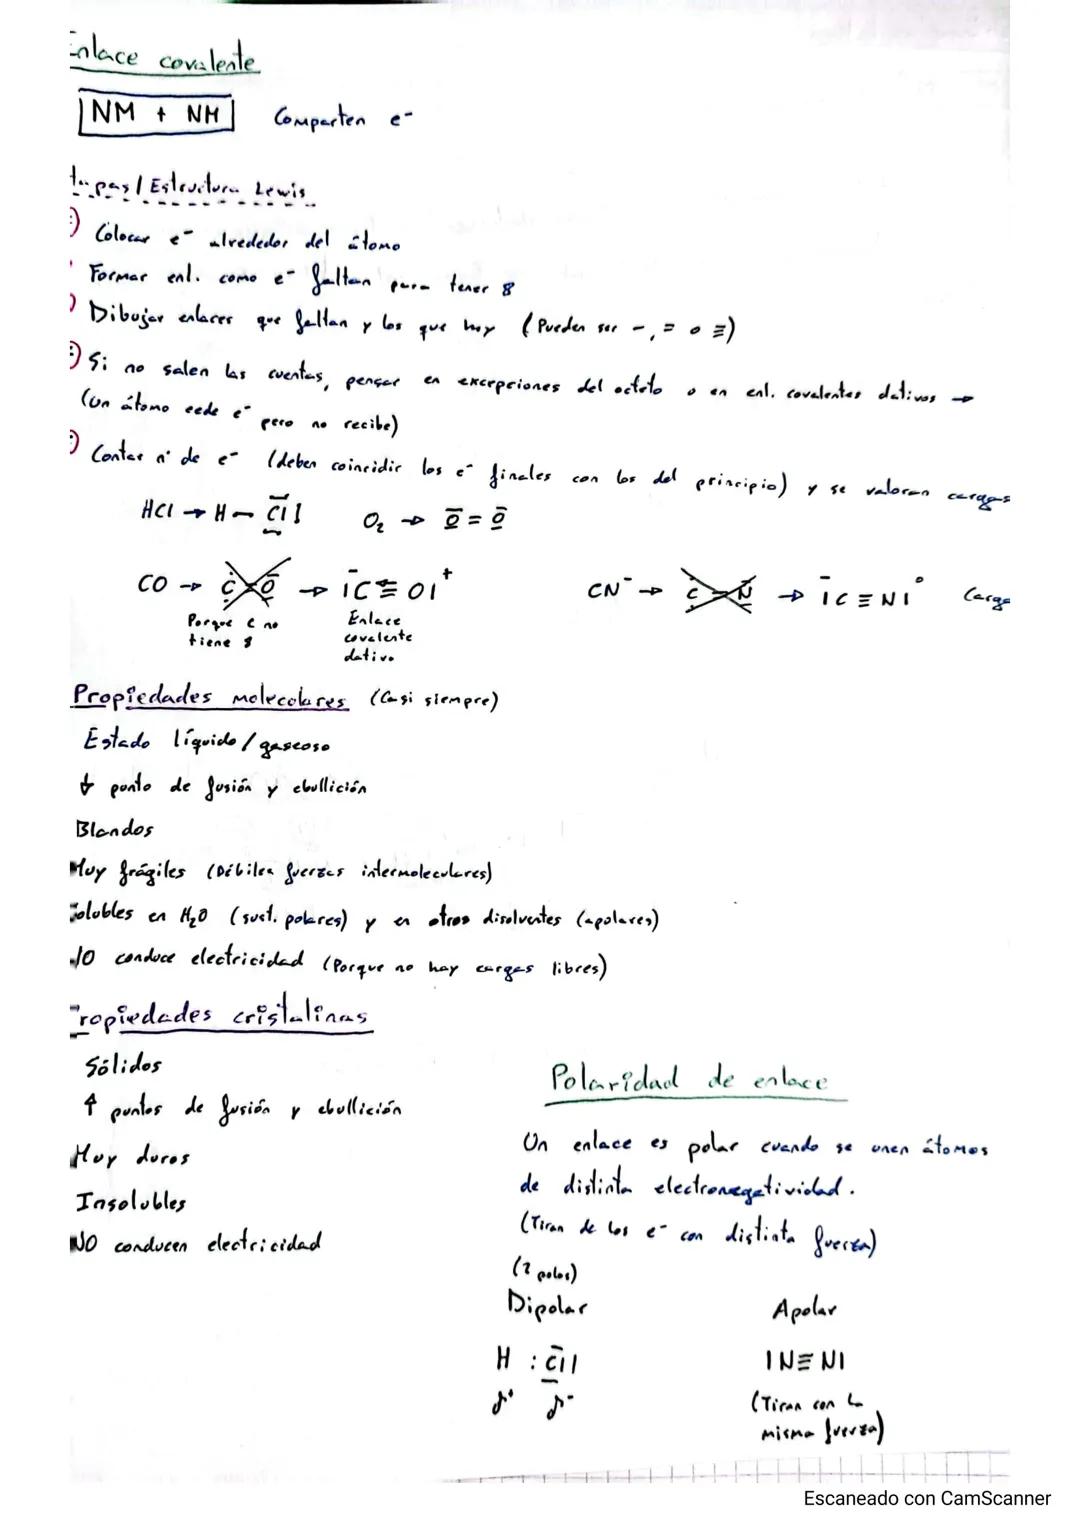 Enlace covalente
NM + NM Comparten e⁻
Etapas / Estructura Lewis
Colocar e⁻ alrededor del átomo
Formar enl. como e⁻ faltan para tener 8
Dibujar enlaces que faltan y los que hay (Pueden ser -, = o ≡)
Si no salen las cuentas, pensar en excepciones del octeto o en enl. covalentes dativos →
(Un átomo cede e⁻ pero no recibe)
Contar nº de e⁻ (deben coincidir los e⁻ finales con los del principio) y se valoran cargas
HCl → H – Cl O₂ → O = O
CO → C = O → |C ≡ O|⁺ CN⁻ → C = N → |C ≡ N|⁰ Carga
Porque C no tiene 8
Enlace covalente dativo
Propiedades moleculares (Casi siempre)
Estado líquido / gaseoso
↓ punto de fusión y ebullición
Blandos
Muy frágiles (Débiles fuerzas intermoleculares)
Solubles en H₂O (sust. polares) y en otros disolventes (apolares)
NO conduce electricidad (Porque no hay cargas libres)
Propiedades cristalinas
Sólidos
↑ puntos de fusión y ebullición
Muy duros
Insolubles
NO conducen electricidad
Polaridad de enlace
Un enlace es polar cuando se unen átomos
de distinta electronegatividad.
(Tiran de los e⁻ con distinta fuerza)
(2 polos)
Dipolar Apolar
H : Cl| |N ≡ N|
δ⁺ δ⁻ (Tiran con la
misma fuerza)
Escaneado con CamScanner